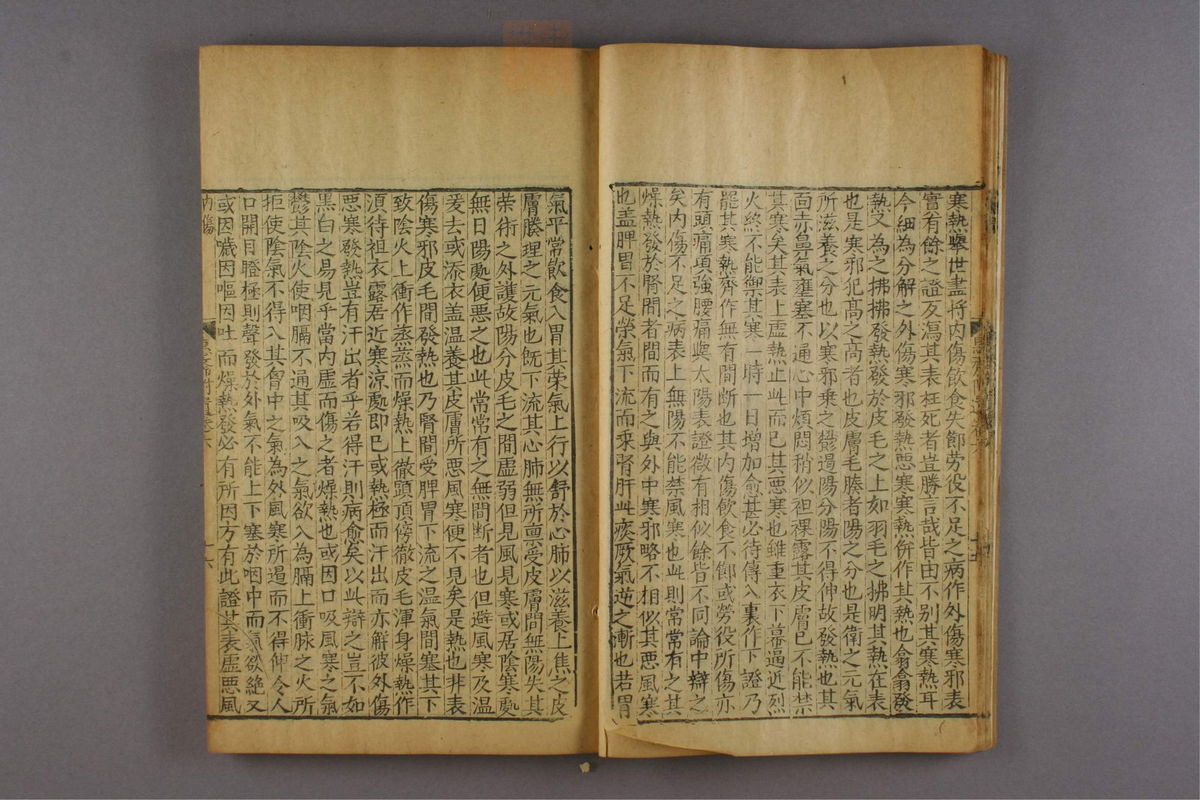 寒熱舉世盡將内傷飲食失節劳役不足之病作外傷寒邪表
實有餘之證反瀉其表枉死者豈勝言哉皆由不别其寒熱耳
今細為分解之外傷寒邪發熱惡寒寒熱併作其熱也翕翕發
熱又為之拂拂發熱發於皮毛之上如羽毛之拂明其熱在表
也是寒邪犯高之高者也皮膚毛腠者陽之分也是衛之元氣
所滋養之分也以寒邪乗之鬱遏陽分陽不得伸故發熱也其
面赤鼻氣壅塞不通心中煩悶稍似袒裸露其皮膚已不能禁
其寒矣其表上虛熱止此而已其惡寒也雖重衣下幕逼近烈
火終不能禦其寒一時一日增加愈甚必待傳入裏作下證乃
罷其寒熱齊作無有間断也其内傷飲食不節或劳役所傷亦
有頭痛項強腰痛與太陽表證微有相似餘皆不同論中辯之
矣内傷不足之病表上無陽不能禁風寒也此則常常有之其
燥熱發於腎間者間而有之與外中寒邪略不相似其惡風寒
也盖脾胃不足榮氣下流而乗腎肝此痿厥氣逆之漸也若胃
氣平常飲食入胃其荣氣上行以舒於心肺以滋養上焦之皮
膚腠理之元氣也既下流其心肺無所禀受皮膚間無陽失其
荣衛之外護故陽分皮毛之間虛弱但見風見寒或居陰寒處
無日陽處便惡之也此常常有之無間断者也但避風寒及温
煖去或添衣盖温養其皮膚所惡風寒便不見矣是熱也非表
傷寒邪皮毛間發熱也乃腎間受脾胃下流之湿氣間塞其下
致陰火上衝作蒸蒸而燥熱上徹頭頂傍徹皮毛渾身燥熱作
須待袒衣露居近寒涼處即已或熱極而汗出而亦解彼外傷
惡寒發熱豈有汗出者乎若得汗則病愈矣以此辯之豈不如
黑白之易見乎當内虛而傷之者燥熱也或因口吸風寒之氣
鬱其陰火使咽膈不通其吸入之氣欲入為膈上衝脉之火所
拒使陰氣不得入其胷中之氣為外風寒所遏而不得伸令人
口開目瞪極則聲發於外氣不能上下塞於咽中而氣欲絶又
或因噦因嘔因吐而燥熱發必有所因方有此證其表虛惡風
内傷